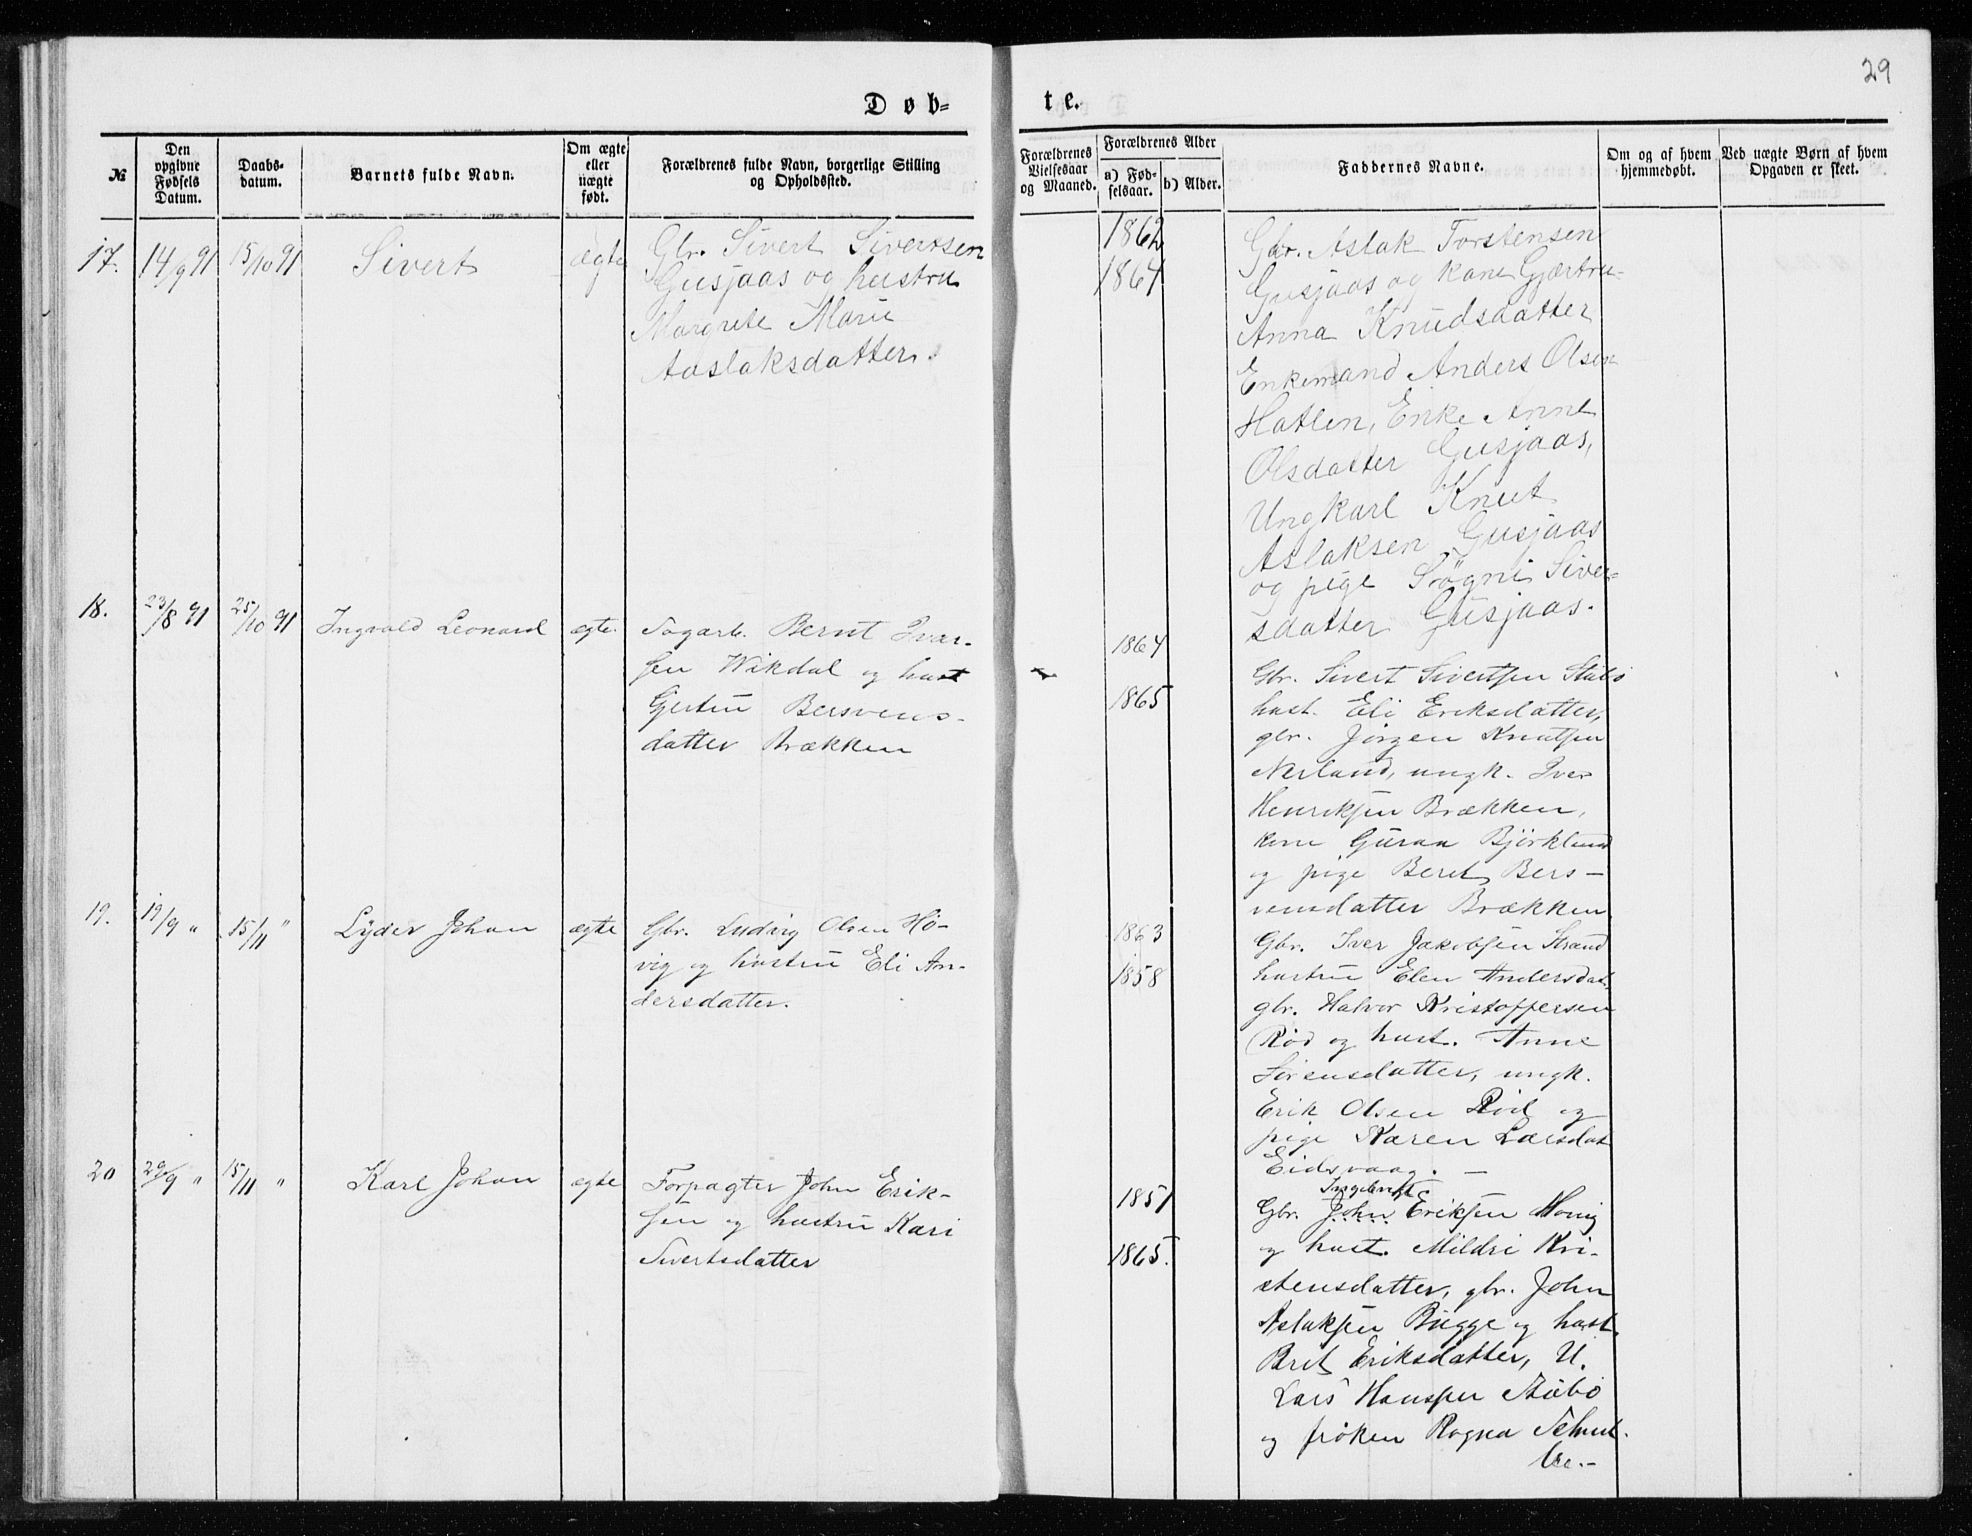 29
Døb-
te.
№
Den opgivne Fødsels Datum.
Daabs-datum.
Barnets fulde Navn.
Om ægte eller uægte født.
Forældrenes fulde Navn, borgerlige Stilling og Opholdssted.
Forældrenes Vielsesaar og Maaned.
Forældrenes Alder
a) Fødselsaar.
b) Alder.
Faddernes Navne.
Om og af hvem hjemmedøbt.
Ved uægte Børn af hvem Opgaven er skeet.
17. 14/9 91 15/10 91 Sivert ægte
Gbr. Sivert Siversen
Gusjaas og hustru
Margrete Marie
Aaslaksdatter.
1862
1864
Gbr. Aslak Torstensen
Gusjaas og kone Gjærtru-
Anna Knudsdatter
Enkemand Anders Olsen
Hatlen, Enke Anne
Olsdatter Gusjaas,
Ungkarl Knut
Aslaksen Gusjaas
og pige Sögni Siver-
sdatter Gusjaas.
18. 23/8 91 25/10 91 Ingvald Leonard ægte
Sagarb. Bernt Ivar-
sen Wikdal og hust
Gjertru Bersvens-
datter Brækken
1864
1865
Gbr. Sivert Sivertsen Stubø
hust. Eli Eriksdatter,
gbr. Jørgen Knutsen
Nerland, ungk. Iver
Henriksen Brækken,
kone Guraa Björklund
og pige Beret Bers-
vensdatter Brækken
19. 19/9 " 15/11 " Lyder Johan ægte
Gbr. Ludvig Olsen Hø-
vig og hustru Eli An-
dersdatter.
1863
1858
Gbr. Iver Jakobsen Strand
hustru Elen Andersdat.
gbr. Halvor Kristoffersen
Rød og hust. Anne
Sørensdatter, ungk.
Erik Olsen Rød og
pige Karen Larsdat
Eidsvaag. -
20 29/9 " 15/11 " Karl Johan ægte
Forpagter John Erik-
sen og hustru Kari
Sivertsdatter
1857
1865.
Ingebrigt
Gbr. John Eriksen
og hust. Mildri Kri-
stensdatter, gbr. John
Aslaksen Bugge og hust.
Bret Eriksdatter, U.
Lars Hansen Stubø
og frøken Ragna